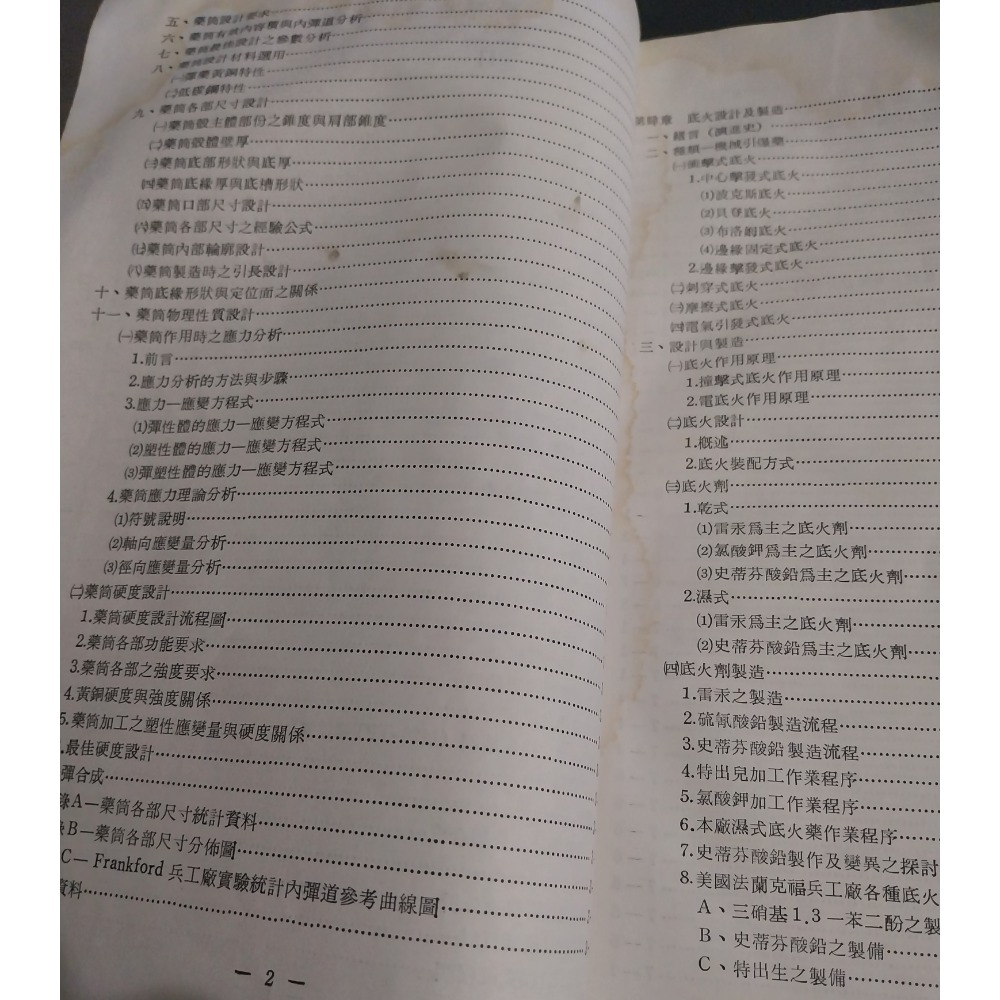 五、藥筒設計要求
六、藥筒有效內容積與內彈道分析
七、藥筒最佳設計之參數分析
八、藥筒設計材料選用
㈠彈藥黃銅特性
㈡低碳鋼特性
九、藥筒各部尺寸設計
㈠藥筒殼主體部份之錐度與肩部錐度
㈡藥筒殼體壁厚
㈢藥筒底部形狀與底厚
㈣藥筒底緣厚與底槽形狀
㈤藥筒口部尺寸設計
㈥藥筒各部尺寸之經驗公式
㈦藥筒內部輪廓設計
㈧藥筒製造時之引長設計
十、藥筒底緣形狀與定位面之關係
十一、藥筒物理性質設計
㈠藥筒作用時之應力分析
1.前言
2.應力分析的方法與步驟
3.應力—應變方程式
⑴彈性體的應力—應變方程式
⑵塑性體的應力—應變方程式
⑶彈塑性體的應力—應變方程式
4.藥筒應力理論分析
⑴符號說明
⑵軸向應變量分析
⑶徑向應變量分析
㈡藥筒硬度設計
1.藥筒硬度設計流程圖
2.藥筒各部功能要求
3.藥筒各部之強度要求
4.黃銅硬度與強度關係
5.藥筒加工之塑性應變量與硬度關係
.最佳硬度設計
彈合成
錄A—藥筒各部尺寸統計資料
B—藥筒各部尺寸分佈圖
C—Frankford 兵工廠實驗統計內彈道參考曲線圖
資料
— 2 —
第肆章 底火設計及製造
一、緒言（演進史）
二、種類—機械引爆藥
㈠衝擊式底火
1.中心擊發式底火
⑴波克斯底火
⑵貝登底火
⑶布洛姆底火
⑷邊緣固定式底火
2.邊緣擊發式底火
㈡刺穿式底火
㈢摩擦式底火
㈣電氣引發式底火
三、設計與製造
㈠底火作用原理
1.撞擊式底火作用原理
2.電底火作用原理
㈡底火設計
1.概述
2.底火裝配方式
㈢底火劑
1.乾式
⑴雷汞爲主之底火劑
⑵氯酸鉀爲主之底火劑
⑶史蒂芬酸鉛爲主之底火劑
2.濕式
⑴雷汞爲主之底火劑
⑵史蒂芬酸鉛爲主之底火劑
㈣底火劑製造
1.雷汞之製造
2.硫氰酸鉛製造流程
3.史蒂芬酸鉛製造流程
4.特出兒加工作業程序
5.氯酸鉀加工作業程序
6.本廠濕式底火藥作業程序
7.史蒂芬酸鉛製作及變異之探討
8.美國法蘭克福兵工廠各種底火
A、三硝基1.3一苯二酚之製
B、史蒂芬酸鉛之製備
C、特出生之製備